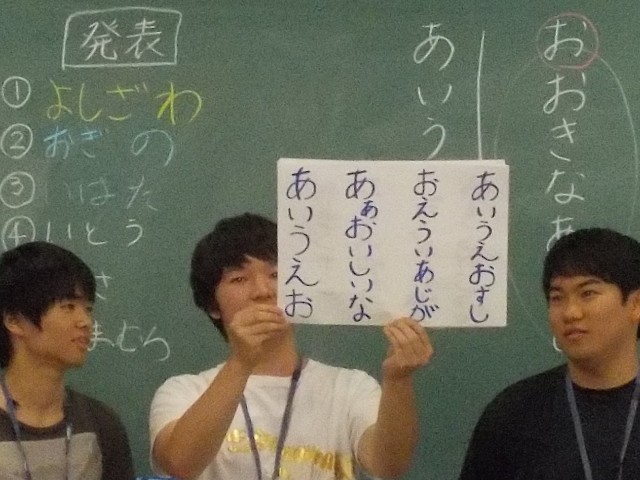 発表
①よしざわ
②おぎの
③いはた
④いとう
さ
まむら
おおきなあ
あいう
あいうえおすし
おえういあじが
あぁおいしいな
あいうえお